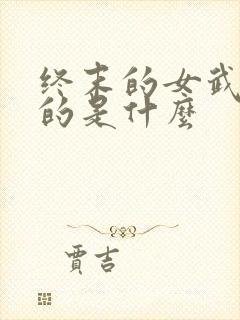 终末的女武
的是什麼
賈吉